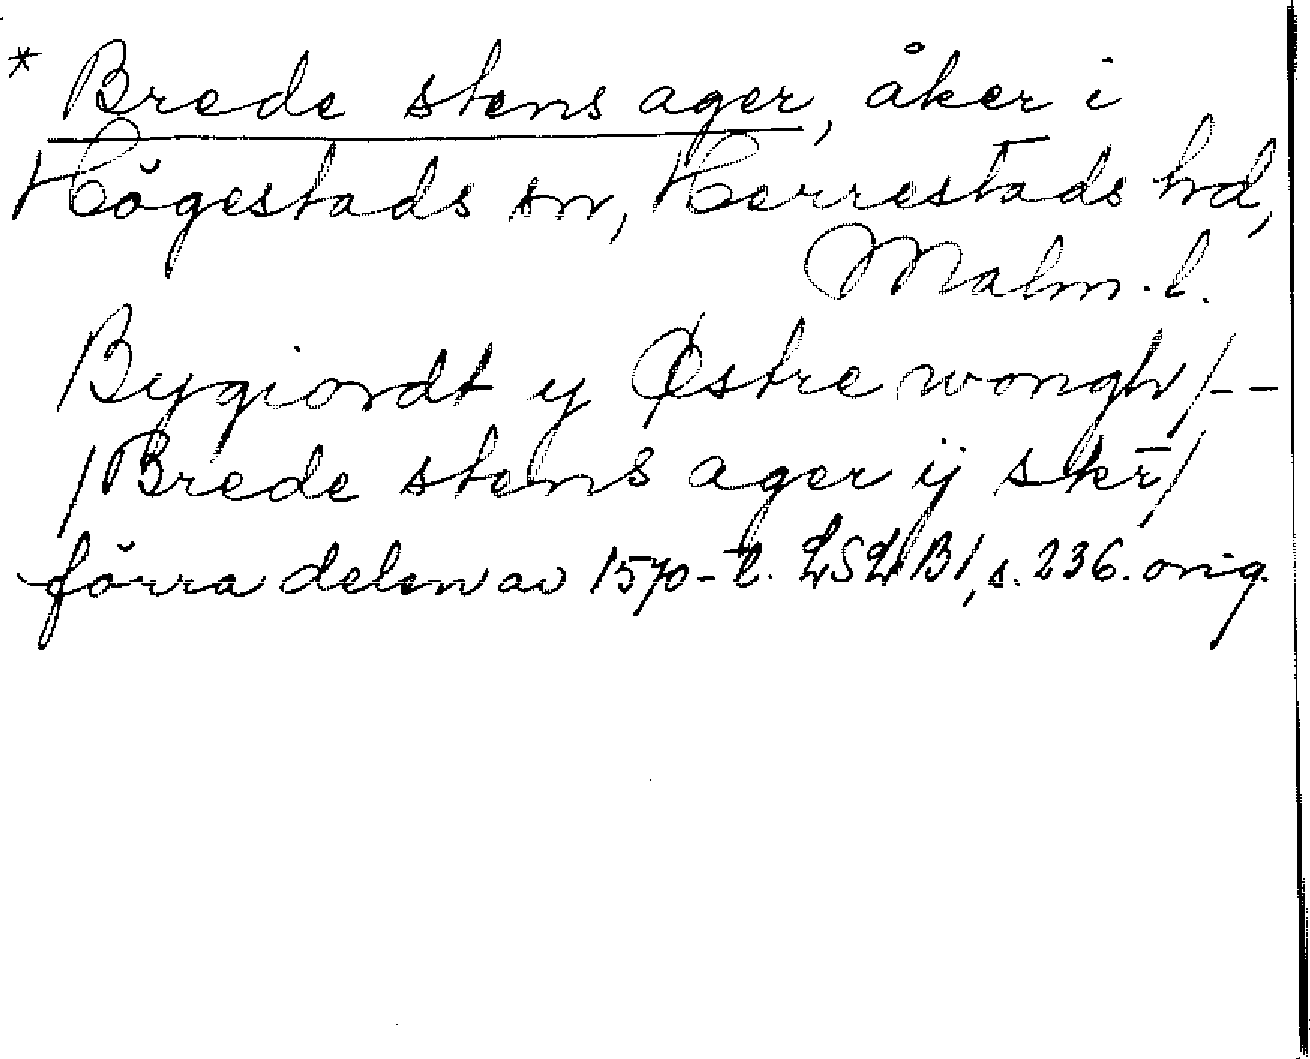 * Brede stens ager, åker i
Högestads sn, Herrestads hd,
Malm. l.
Bygiordt y Østre wongh/--
/Brede stens ager ij skr̄/
förra delen av 1570-t. LSLB1, s. 236. orig.